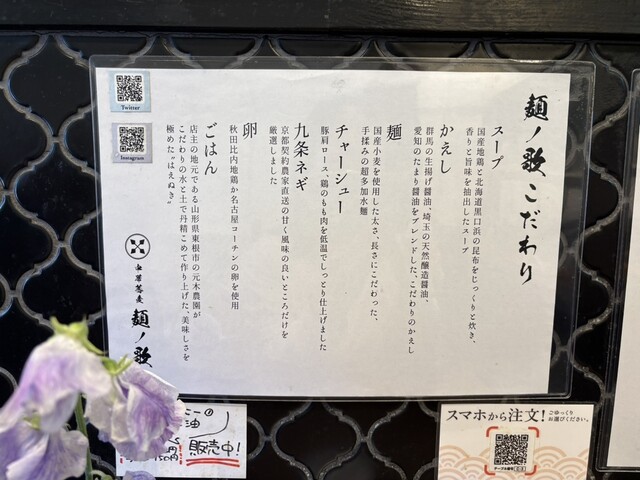 麺ノ歌 こだわり
スープ
国産地鶏と北海道黒口浜の昆布をじっくりと炊き、
香りと旨味を抽出したスープ
かえし
群馬の生揚げ醤油、埼玉の天然醸造醤油、
愛知のたまり醤油をブレンドした、こだわりのかえし
麺
国産小麦を使用した太さ、長さにこだわった、
手揉みの超多加水麺
チャーシュー
豚肩ロース、鶏のもも肉を低温でしっとり仕上げました
九条ネギ
京都契約農家直送の甘く風味の良いところだけを
厳選しました
卵
秋田比内地鶏か名古屋コーチンの卵を使用
ごはん
店主の地元である山形県東根市の元木農園が
こだわりの水と土で丹精こめて作り上げた、美味しさを
極めた"はえぬき"
中華蕎麦
麺ノ歌
Twitter
Instagram
油
150円
販売中!
スマホから注文!
ごゆっくり
お選びください。